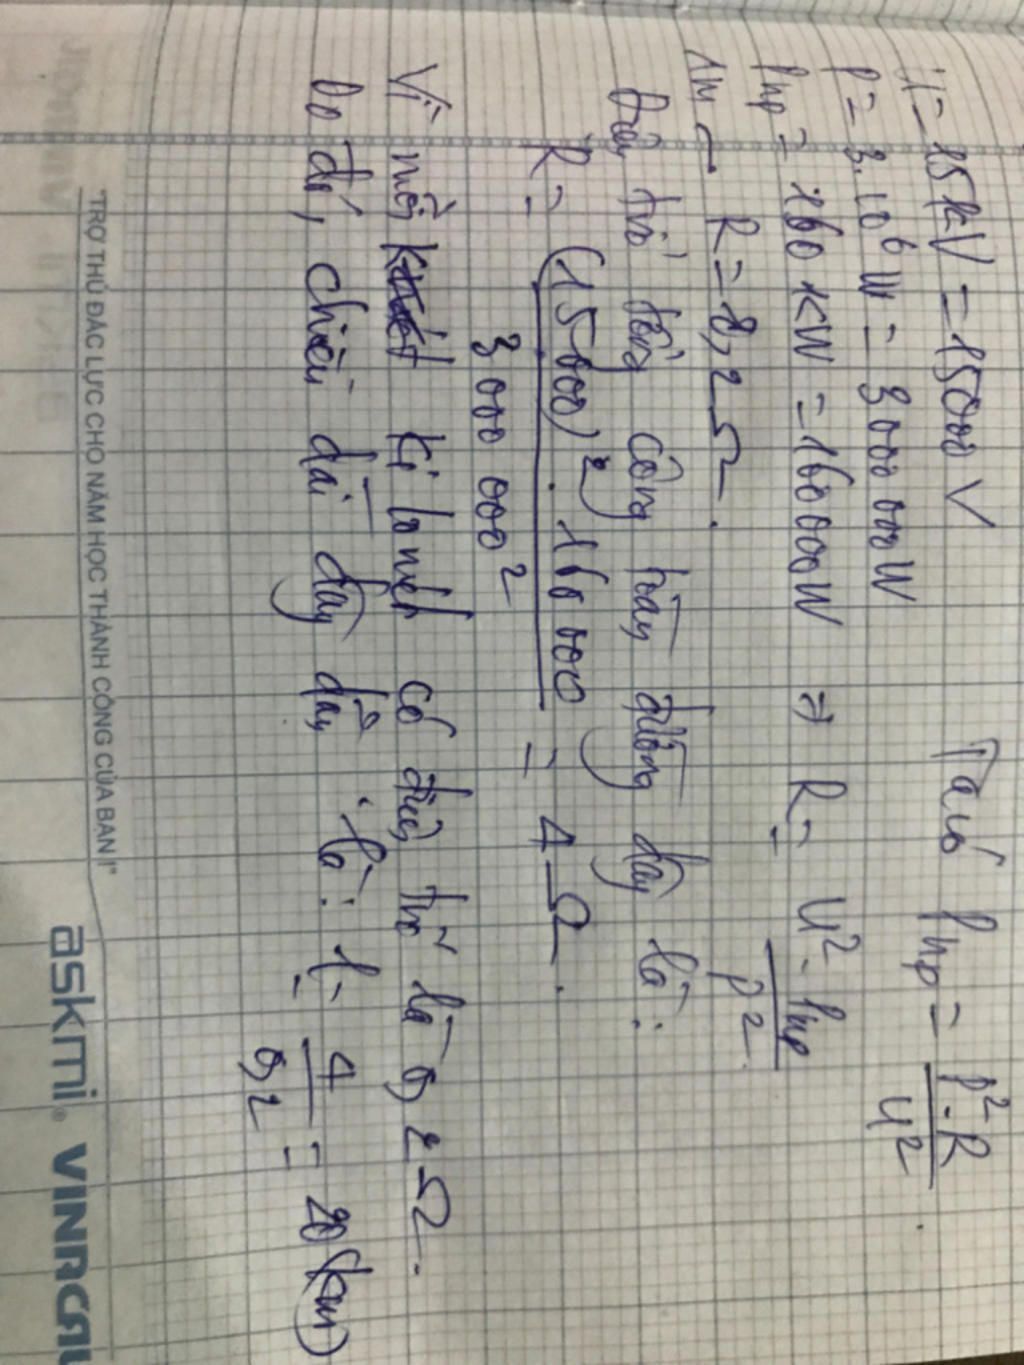 U = 15 kV = 15000 V
Ta có Php = P² . R / U²
P = 3.10⁶ W = 3000 000 W
Php = 160 kW = 160000 W ⇒ R = U² . Php / P²
1m – R = 0,2 Ω.
Điện trở tổng cộng toàn đường dây là :
R = (15000)² . 160 000 / 3 000 000² = 4 Ω .
Vì mỗi ki lo mét có điện trở là 0,2 Ω .
Do đó, chiều dài dây dẫn là : l = 4 / 0,2 = 20 (km)
"TRỢ THỦ ĐẮC LỰC CHO NĂM HỌC THÀNH CÔNG CỦA BẠN!"
askmi® VINACAL